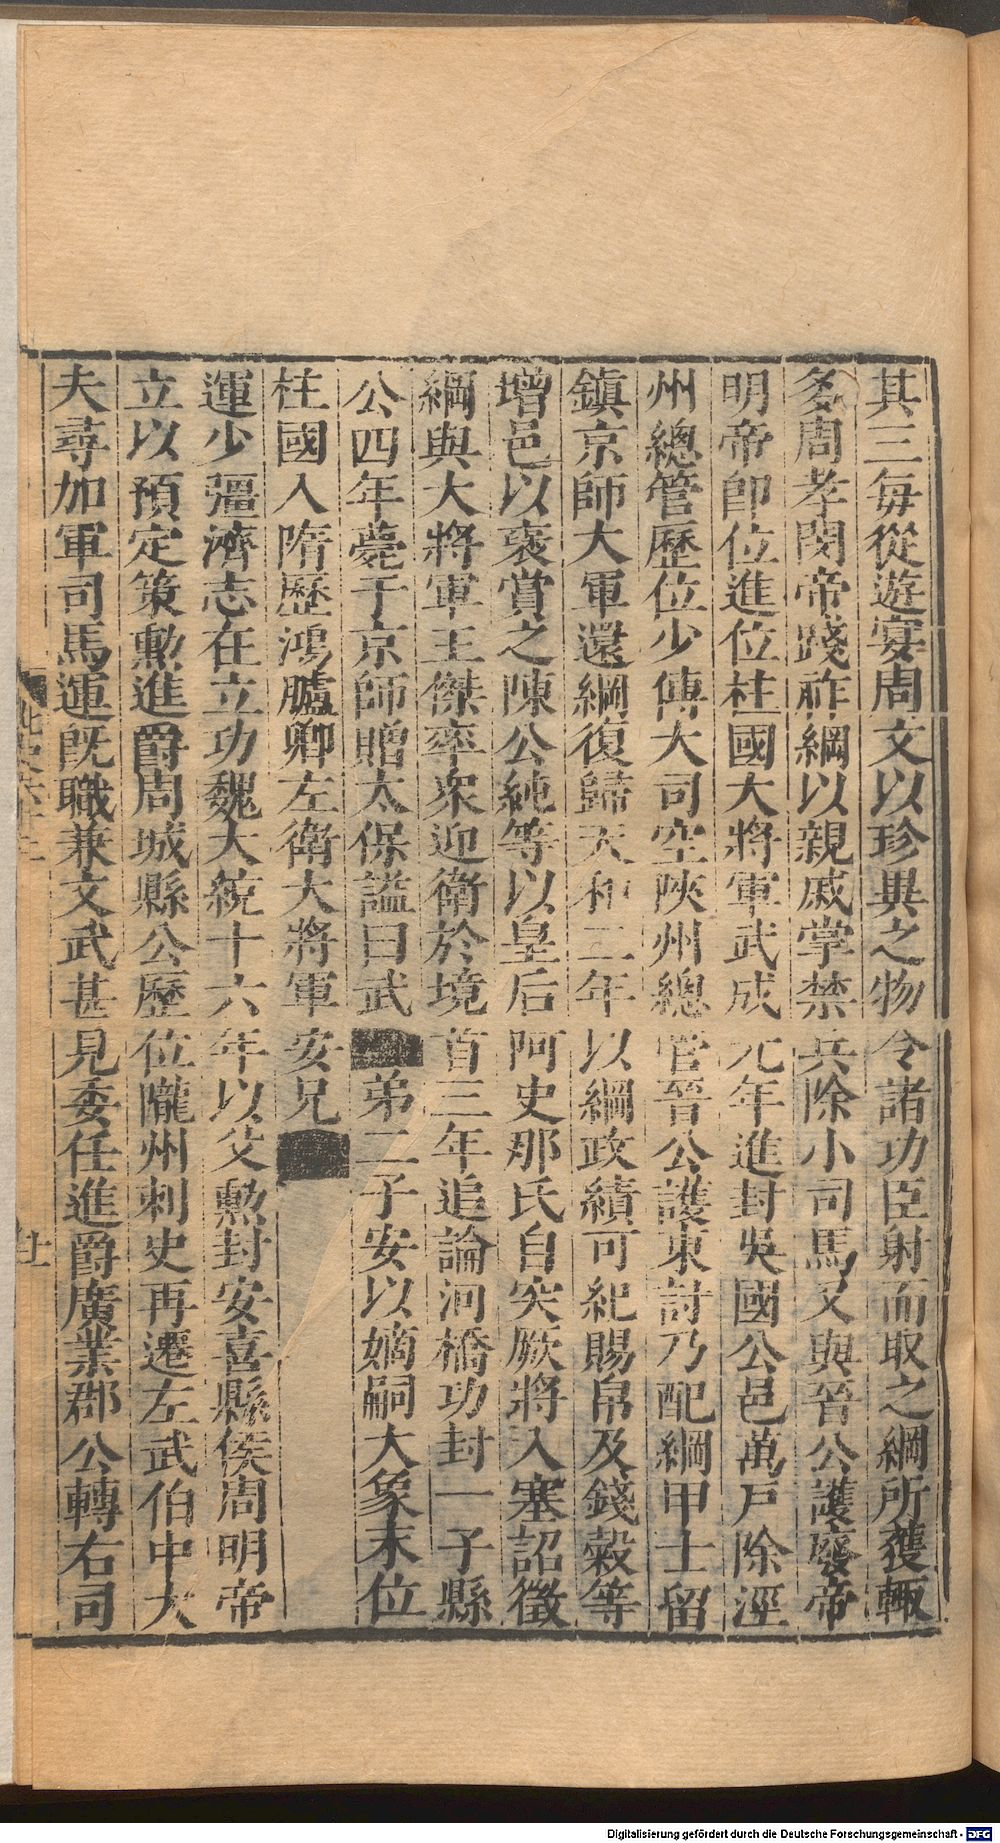 其三每從遊宴周文以珍異之物令諸功臣射而取之綱所獲輙
多周孝閔帝踐祚綱以親戚掌禁兵除小司馬又與晉公護廢帝
明帝卽位進位柱國大將軍武成元年進封吳國公邑萬戶除涇
州總管歷位少傅大司空陝州總管晉公護東討乃配綱甲士留
鎮京師大軍還綱復歸天和二年以綱政績可紀賜帛及錢穀等
增邑以褒賞之陳公純等以皇后阿史那氏自突厥將入塞詔徵
綱與大將軍王傑率衆迎衛於境首三年追論河橋功封一子縣
公四年薨于京師贈太保謚曰武弟二子安以嫡嗣大象末位
柱國入隋歷鴻臚卿左衛大將軍安兄
運少彊濟志在立功魏大統十六年以父勲封安喜縣侯周明帝
立以預定策勲進爵周城縣公歷位隴州刺史再遷左武伯中大
夫尋加軍司馬運旣職兼文武甚見委任進爵廣業郡公轉右司
北史六十二
廿
Digitalisierung gefördert durch die Deutsche Forschungsgemeinschaft - DFG